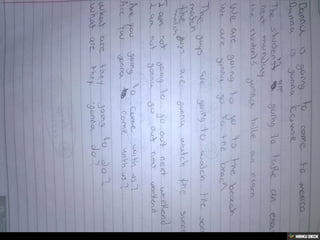 Danna is going to come to mexico
Danna is gonna come
The students are going to take an exam
next morning
the students gonna take an exam
We are going to go to the beach
We are gonna go to the beach
The guys are going to watch the soccer
match
The guys are gonna watch the soccer
match
I am not going to go out next weekend
I am not gonna go out next weekend
Are you going to come with us?
Are you gonna come with us?
What are they going to do?
What are they gonna do?